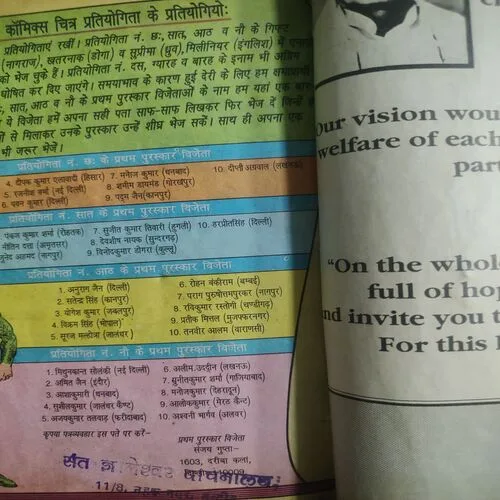 कॉमिक्स चित्र प्रतियोगिता के प्रतियोगियो:
प्रतियोगिताएं रखीं। प्रतियोगिता नं. छः, सात, आठ व नौ के गिफ्ट
(नागराज), खतरनाक (डोगा) व सुप्रीमा (ध्रुव), मिलीनियर (इंगलिश) में
को भेज चुके हैं। प्रतियोगिता नं. दस, ग्यारह व बारह के इनाम भी अग्रिम
घोषित कर दिए जाएंगे। समयाभाव के कारण हुई देरी के लिए हम क्षमाप्रार्थी
छः, सात, आठ व नौ के प्रथम पुरस्कार विजेताओं के नाम हम यहां एक बार
ये विजेता हमें अपना सही पता साफ-साफ लिखकर फिर भेज दें जिन्हें
से मिलाकर उनके पुरस्कार उन्हें शीघ्र भेज सकें। साथ ही अपना एक
भी जरूर भेजें।
प्रतियोगिता नं. छः के प्रथम पुरस्कार विजेता
4. दीपक कुमार एलावादी (हिसार)
5. रजनीश वर्मा (नई दिल्ली)
6. पवन कुमार (दिल्ली)
7. मनोज कुमार (धनबाद)
8. शमीम डायमंड (गोरखपुर)
9. पदुम जैन(कानपुर)
10. दीप्ती अग्रवाल (लखनऊ)
प्रतियोगिता नं. सात के प्रथम पुरस्कार विजेता
पंकज कुमार (रोहतक)
नीतिन दत्ता (अमृतसर)
जुनेद अहमद (नागपुर)
7. सुजीत कुमार तिवारी (हुगली)
8. देवशीष नायक (सुन्दरगढ़)
9. विनोदकुमार डोगरा (कुल्लू)
10. हरप्रीतसिंह (दिल्ली)
प्रतियोगिता नं. आठ के प्रथम पुरस्कार विजेता
1. अनुराग जैन (दिल्ली)
2. सतेन्द्र सिंह (कानपुर)
3. योगेश कुमार (जबलपुर)
4. विक्रम सिंह (भोपाल)
5. सूरज मल्होत्रा (जालंधर)
6. रोहन बंकीराम (बम्बई)
7. पराग पुरुषोत्तमपुरकर (नागपुर)
8. रविकुमार रस्तोगी (चण्डीगढ़)
9. प्रतीक मित्तल (मुजफ्फरनगर)
10. तनवीर आलम (वाराणसी)
प्रतियोगिता नं. नौ के प्रथम पुरस्कार विजेता
1. मिथुनकान्त सोलंकी (नई दिल्ली)
2. अमित जैन (इंदौर)
3. आशाकुमारी (धनबाद)
4. सुशीलकुमार (जालंधर कैण्ट)
5. अजयकुमार तलवाड़ (फरीदाबाद)
6. अलीम.उद्दीन (लखनऊ)
7. सुनीतकुमार शर्मा (गाजियाबाद)
8. मनोजकुमार (देहरादून)
9. आलोककुमार (मेरठ कैन्ट)
10. अश्वनी भार्गव (अलवर)
कृपया पत्रव्यवहार इस पते पर करें-
प्रथम पुरस्कार विजेता
संजय गुप्ता-
1603, दरीबा कलां,
संत ज्ञानेश्वर वाचनालय
11/8,
Our vision wou
welfare of each
part
“On the whol
full of hop
nd invite you t
For this